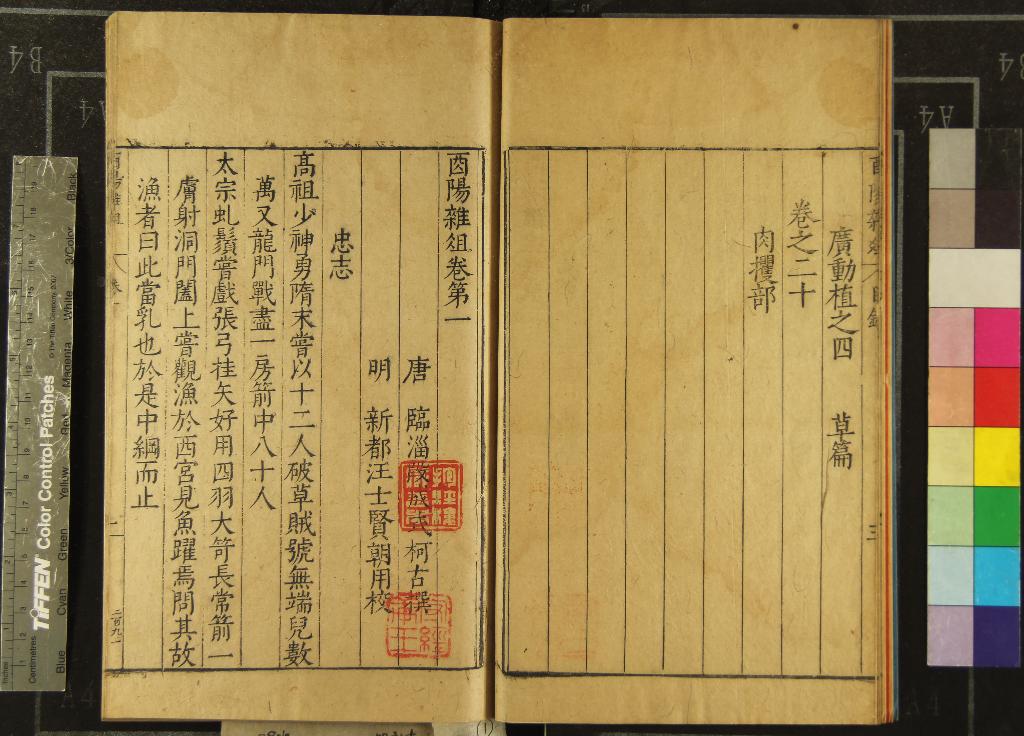 廣動植之四 草篇
卷之二十
肉攫部
三
酉陽雜俎卷第一
唐 臨淄段成式柯古撰
明 新都汪士賢朝用校
忠志
高祖少神勇隋末嘗以十二人破草賊號無端兒數
萬又龍門戰盡一房箭中八十人
太宗虬鬚嘗戲張弓挂矢好用四羽大笴長常箭一
膚射洞門闔上嘗觀漁於西宮見魚躍焉問其故
漁者曰此當乳也於是中網而止
B4
A4
A4
4
A4
A4
TIFFEN Color Control Patches
© The Tiffen Company, 2007
Inches
Centimetres
Blue
Cyan
Green
Yellow
Red
Magenta
White
3/Color
Black